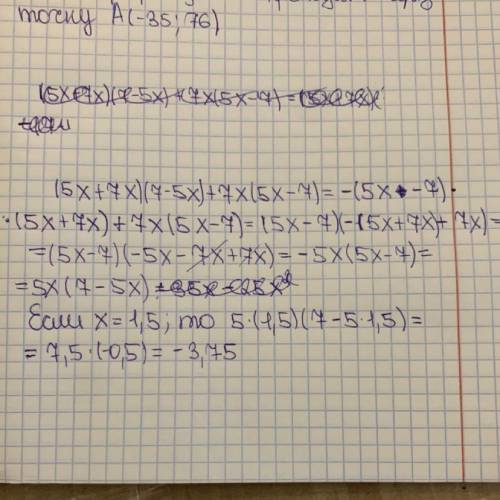 точку A(-35; 76)
(5x+7x)(7-5x)+7x(5x-7)=
(5x+7x)(7-5x)+7x(5x-7)=-(5x-7)·
·(5x+7x)+7x(5x-7)=(5x-7)(-(5x+7x)+7x)=
=(5x-7)(-5x-7x+7x)=-5x(5x-7)=
=5x(7-5x)=35x-25x²
Если x=1,5; то 5·(1,5)(7-5·1,5)=
=7,5·(-0,5)=-3,75